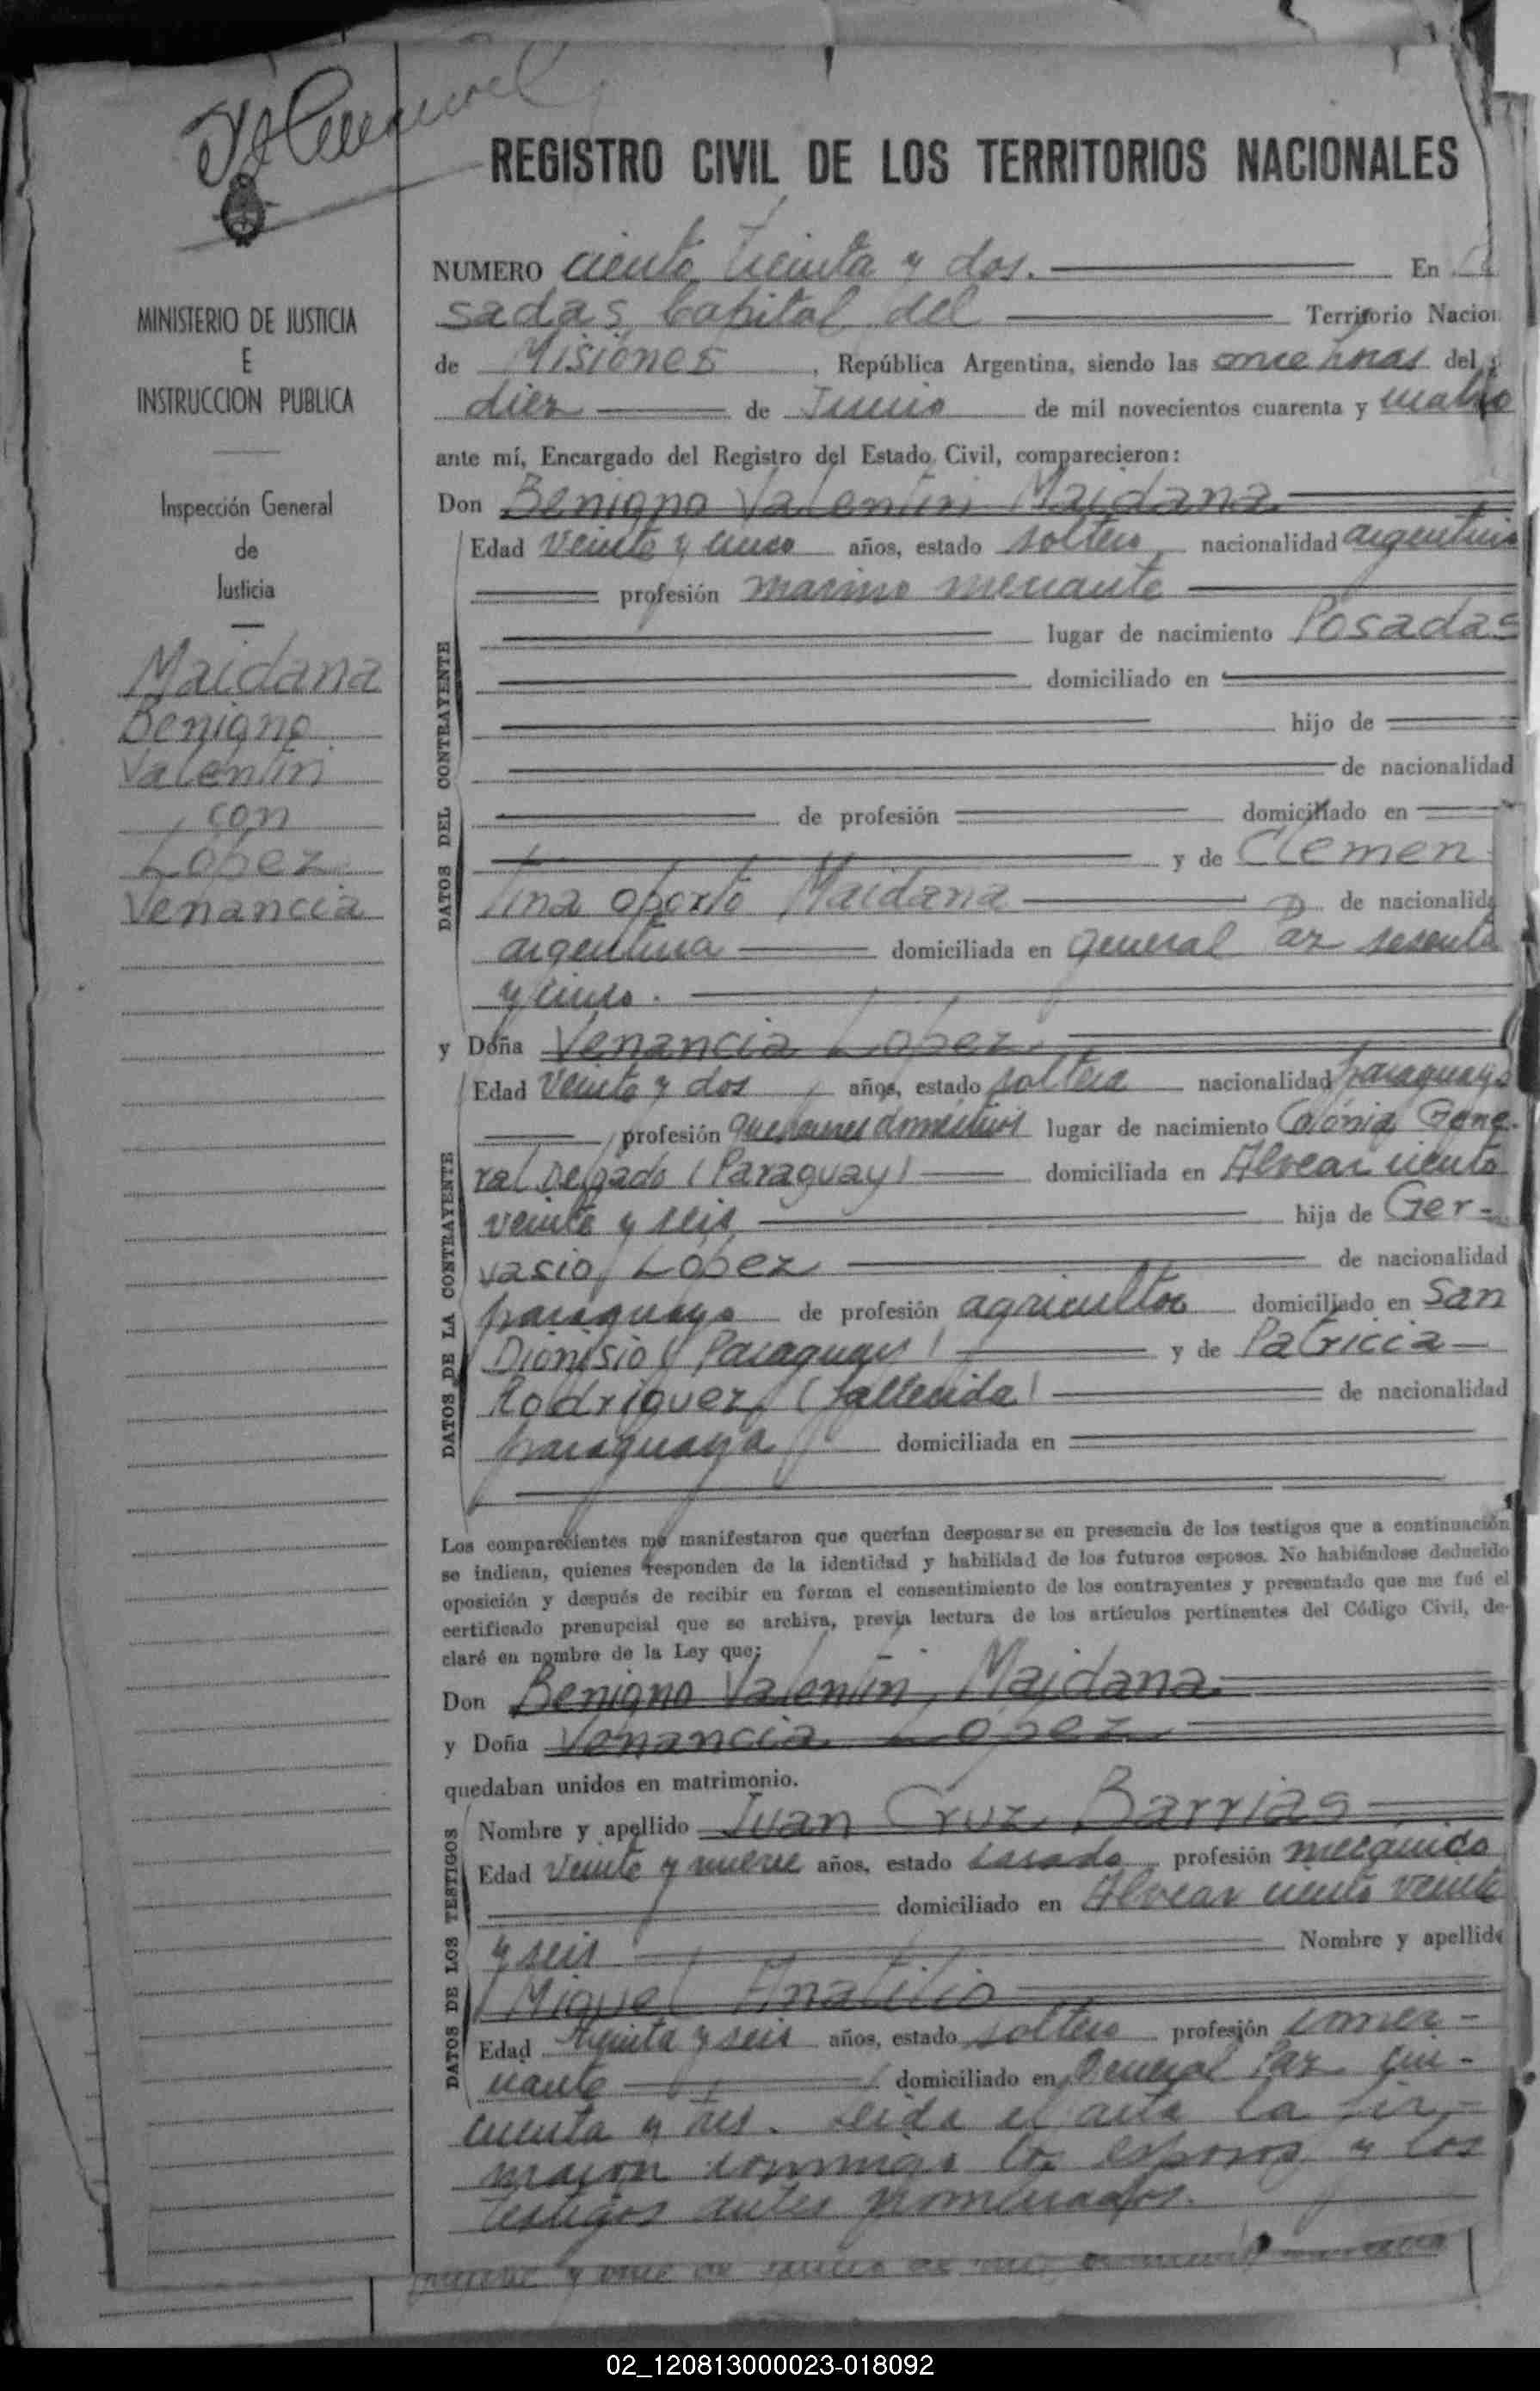 REGISTRO CIVIL DE LOS TERRITORIOS NACIONALES
MINISTERIO DE JUSTICIA
E
INSTRUCCION PUBLICA
Inspección General
de
Justicia
Maidana
Benigno
Valentin
con
López
Venancia
NUMERO ciento treinta y dos. En
sadas, Capital del Territorio Nacion
de Misiones, República Argentina, siendo las once horas del
diez de Junio de mil novecientos cuarenta y cuatro
ante mí, Encargado del Registro del Estado Civil, comparecieron:
Don Benigno Valentin Maidana
DATOS DEL CONTRAYENTE
Edad veinte y cinco años, estado soltero, nacionalidad argentino
profesión marino mercante
lugar de nacimiento Posadas
domiciliado en
hijo de
de nacionalidad
de profesión domiciliado en
y de Clemen
tina oporto Maidana de nacionalida
argentina domiciliada en general Paz sesenta
y cinco.
y Doña Venancia López
DATOS DE LA CONTRAYENTE
Edad veinte y dos años, estado soltera nacionalidad paraguaya
profesión quehaceres domésticos lugar de nacimiento Colonia Gene-
ral Delgado (Paraguay) domiciliada en Alvear ciento
veinte y seis hija de Ger-
vasio López de nacionalidad
paraguayo de profesión agricultor domiciliado en San
Dionisio (Paraguay) y de Patricia
Rodríguez, (fallecida) de nacionalidad
paraguaya domiciliada en
Los comparecientes me manifestaron que querían desposarse en presencia de los testigos que a continuación
se indican, quienes responden de la identidad y habilidad de los futuros esposos. No habiéndose deducido
oposición y después de recibir en forma el consentimiento de los contrayentes y presentado que me fué el
certificado prenupcial que se archiva, previa lectura de los artículos pertinentes del Código Civil, de-
claré en nombre de la Ley que:
Don Benigno Valentin Maidana
y Doña Venancia López
quedaban unidos en matrimonio.
DATOS DE LOS TESTIGOS
Nombre y apellido Juan Cruz Barrias
Edad veinte y nueve años, estado casado, profesión mecánico
domiciliado en Alvear ciento veinte
y seis Nombre y apellido
Miguel Analilio
Edad treinta y seis años, estado soltero profesión comer-
ciante domiciliado en General Paz cin-
cuenta y tres. Leída el acta la fir-
maron conmigo los esposos y los
testigos antes nomenciados.
02_120813000023-018092